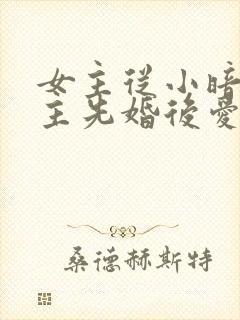 女主從小暗
主先婚後愛
桑德赫斯特